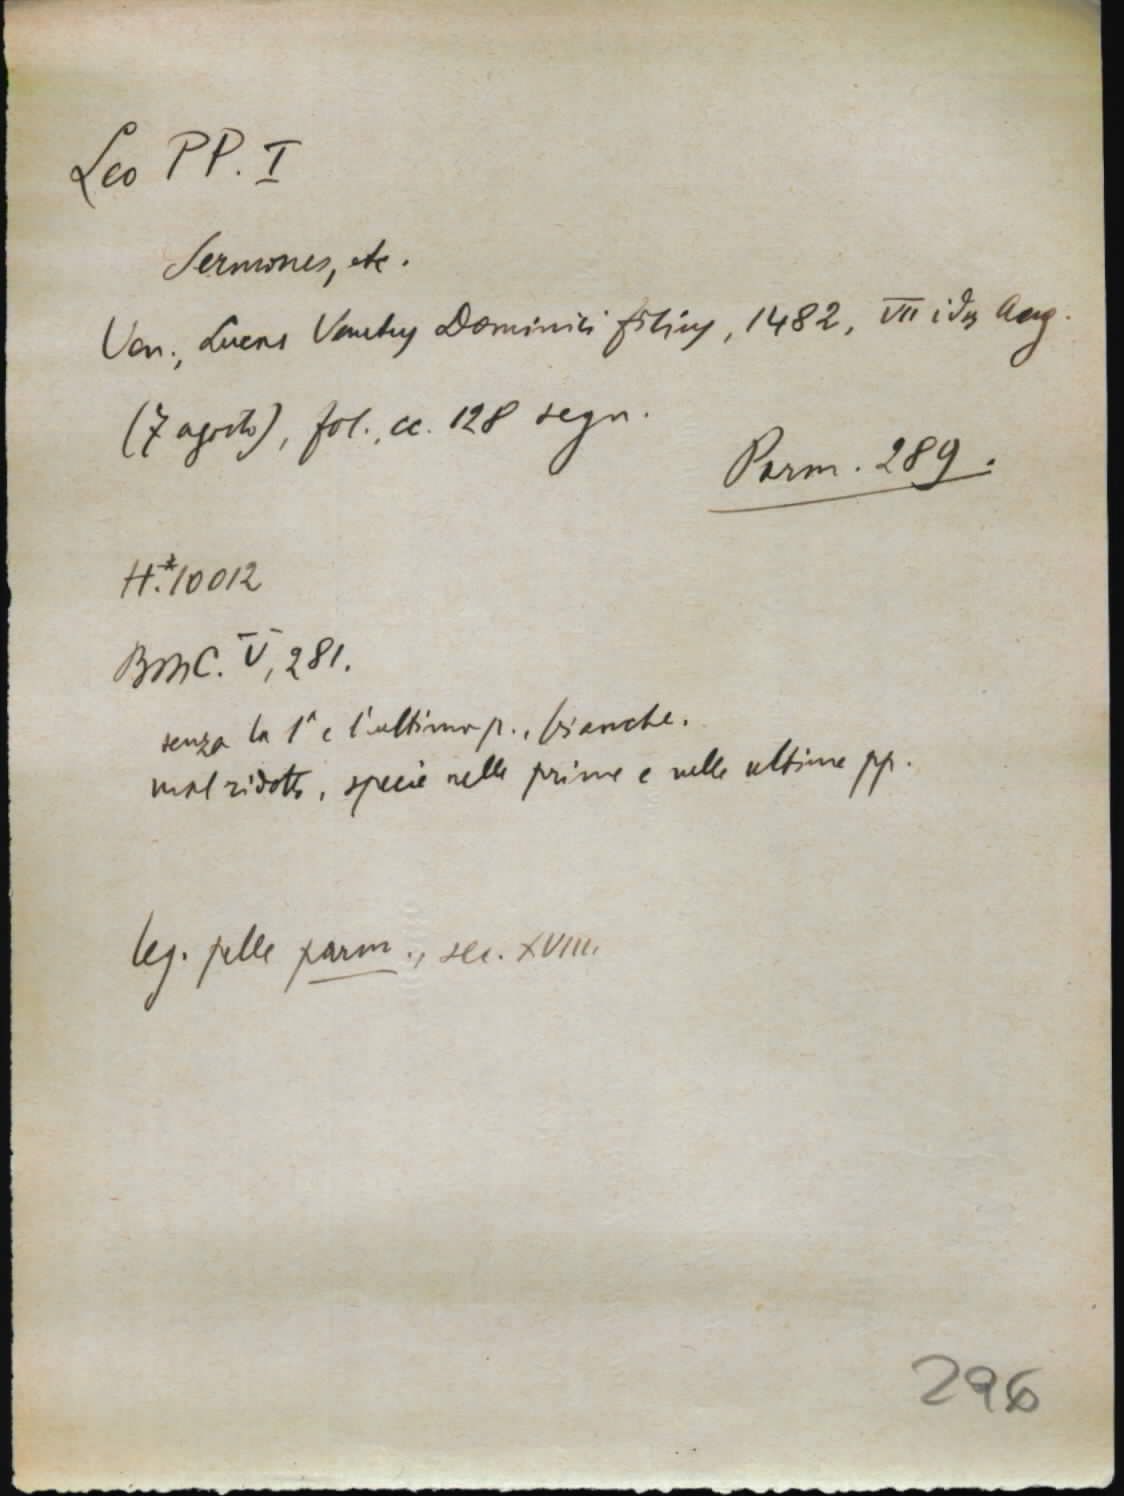 Leo PP. I
Sermones, etc.
Ven., Lucas Venetus Dominici filius, 1482, VII idus Aug.
(7 agosto), fol., cc. 128 segn.
Parm. 289.
H.*10012
BMC. V, 281.
senza la 1ª e l'ultima p., bianche.
mal ridotto, specie nelle prime e nelle ultime pp.
leg. pelle parm., sec. XVIII.
296